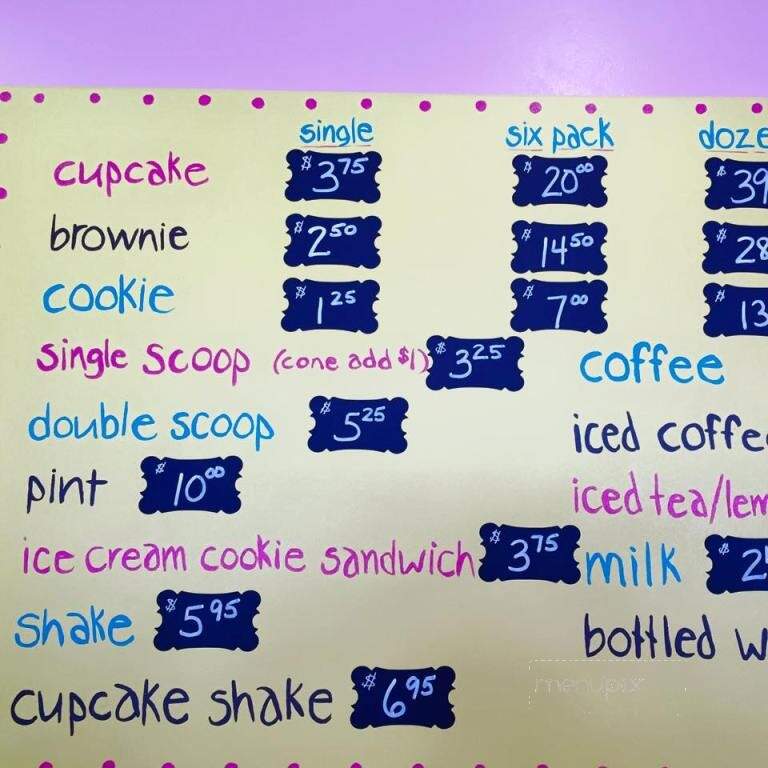 single six pack
cupcake $3.75 $20.00 $39
brownie $2.50 $14.50 $28
cookie $1.25 $7.00 $13
single scoop (cone add $1) $3.25 coffee
double scoop $5.25 iced
pint $10.00 iced tea
ice cream cookie sandwich $3.75 milk
shake $5.95 bottled
cupcake shake $6.95
menupix